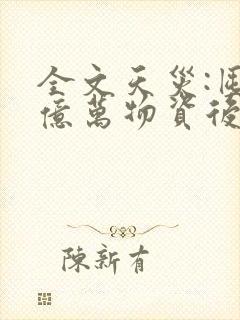 全文天災:囤
億萬物資後
陳新有